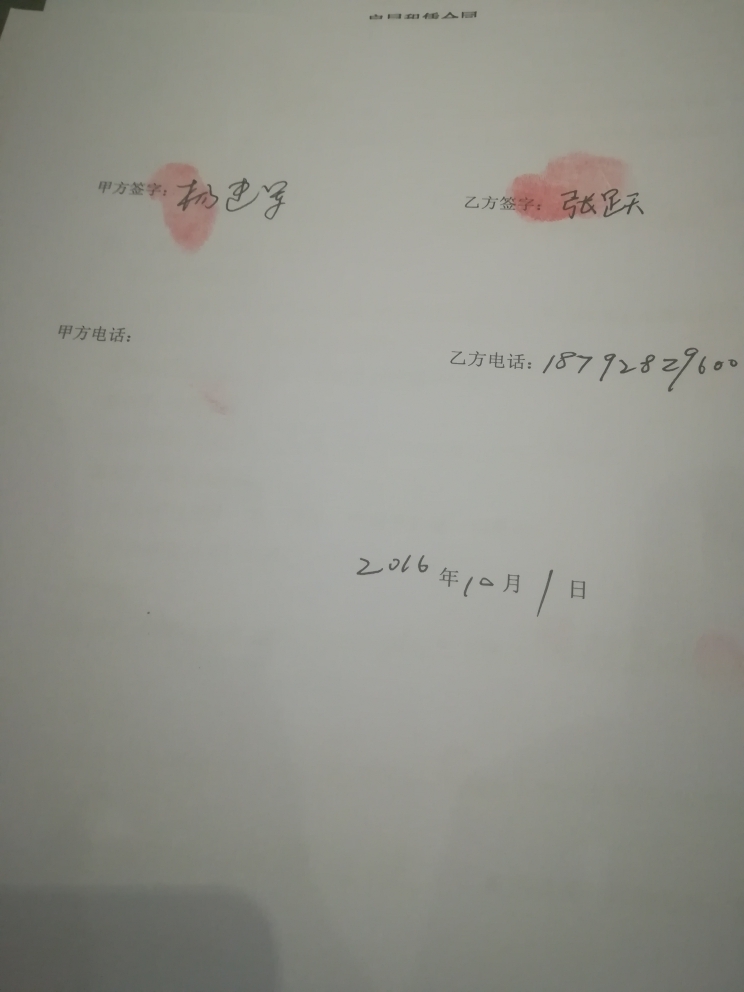 甲方签字：杨建军 乙方签字：张跃天
甲方电话：
乙方电话：18792829600
2016年10月1日